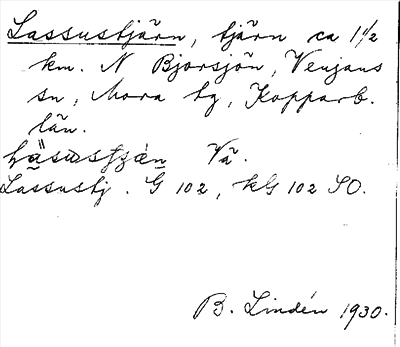 Lassustjärn, tjärn ca 1 1/2
km. N Bjorsjön, Venjans
sn, Mora tg, Kopparb.
län.
Vå.
Lassustj. G 102, kG 102 SO.
B. Lindén 1930.